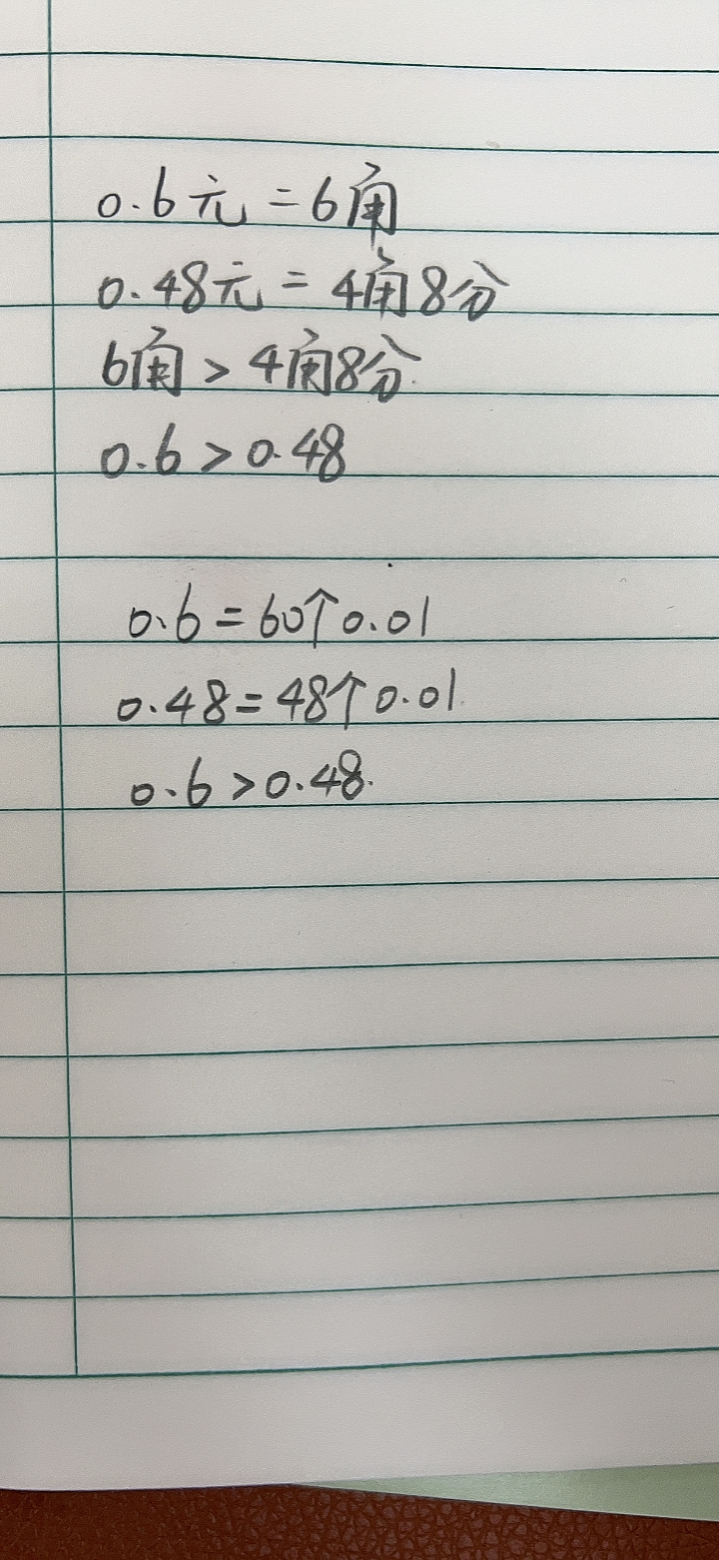 0.6元=6角
0.48元=4角8分
6角>4角8分.
0.6>0.48
0.6=60个0.01
0.48=48个0.01.
0.6>0.48.